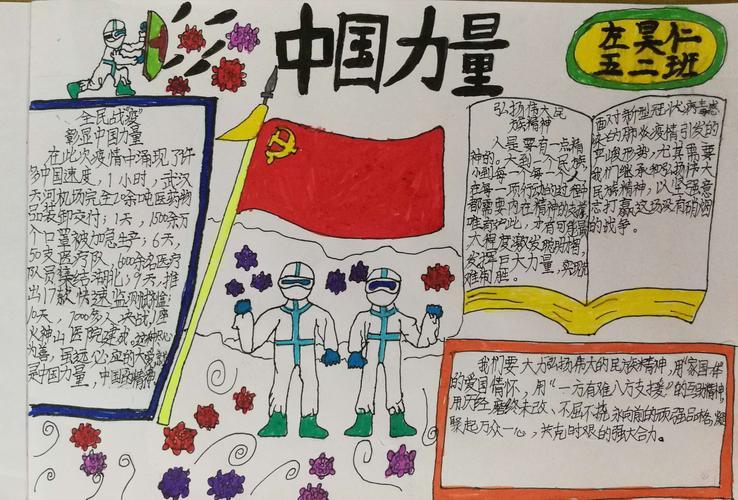 中国力量
左昊仁
五二班
全民战"疫"
彰显中国力量
在此次疫情中涌现了许
多中国速度，1小时，武汉
天河机场完全20余吨医药物
品装卸交付；1天，1500余万
个口罩被加急生产；6天，
50支医疗队，6000余名医疗
队员集结湖北；9天，推
出17款快速监测试剂盒；
10天，7000多人决战，座
火神山医院建成，这种众心
为善，
是中国力量，中国的精神
弘扬伟大民
族精神
人是要有一点精
神的。大到一个民族
小到每一个每一个人
在每一项行动的过程中
都需要内在精神的支撑
唯有如此，才有可能最
大程度激发聪明智，
发挥巨大力量，实现克
难制胜。
面对新型冠状病毒感
染的肺炎疫情引发的
严峻形势，尤其需要
我们继承和弘扬伟大
民族精神，以坚强意
志打赢这场没有硝烟
的战争。
我们要大力弘扬伟大的民族精神，用"家国一体"
的爱国情怀，用"一方有难八方支援"的互助精神，
用历经磨终未改、不屈不挠、永向前的顽强品格，凝
聚起万众一心，共克时艰的强大合力。